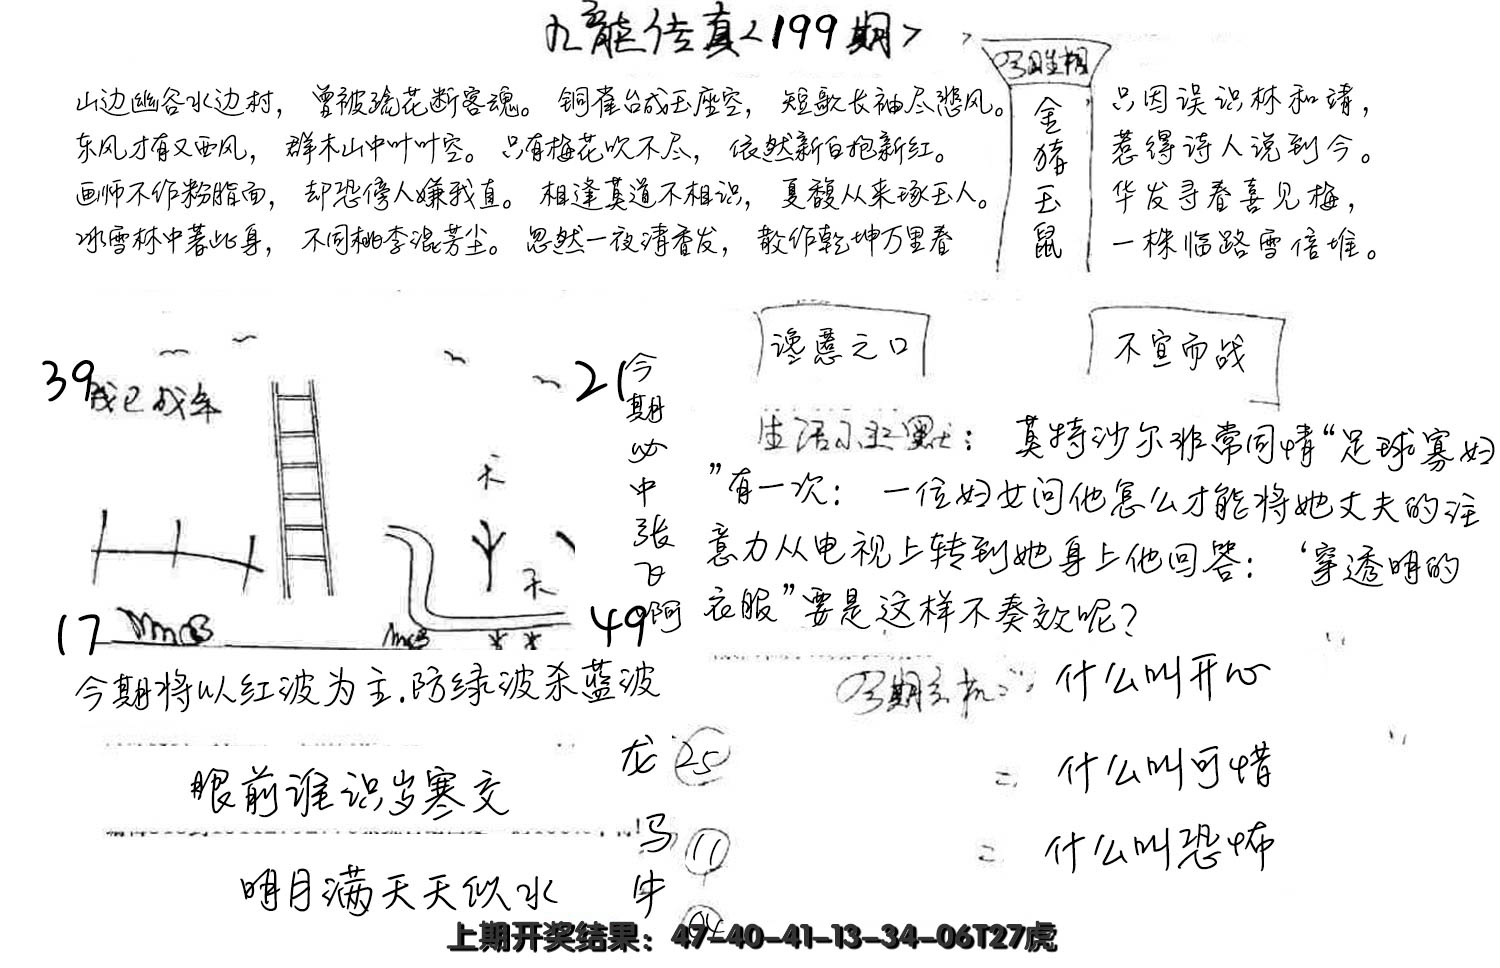 九龍传真<199期>
山边幽谷水边村，曾被疏花断客魂。铜雀台成玉座空，短歌长袖尽悲风。
东风才有又西风，群木山中叶叶空。只有梅花吹不尽，依然新白抱新红。
画师不作粉脂面，却恐傍人嫌我直。相逢莫道不相识，夏馥从来琢玉人。
冰雪林中著此身，不同桃李混芳尘。忽然一夜清香发，散作乾坤万里春
今期生相
金猪玉鼠
只因误识林和靖，
惹得诗人说到今。
华发寻春喜见梅，
一株临路雪倍堆。
谗慝之口
不宣而战
39
21
17
49
今期必中张飞啊
生活小幽默：莫特沙尔非常同情“足球寡妇
”有一次：一位妇女问他怎么才能将她丈夫的注
意力从电视上转到她身上他回答：‘穿透明的
衣服”要是这样不奏效呢？
今期将以红波为主.防绿波杀蓝波
眼前谁识岁寒交
明月满天天似水
龙 25
马 11
牛
今期玄机：什么叫开心
二 什么叫可惜
二 什么叫恐怖
上期开奖结果：47-40-41-13-34-06T27虎